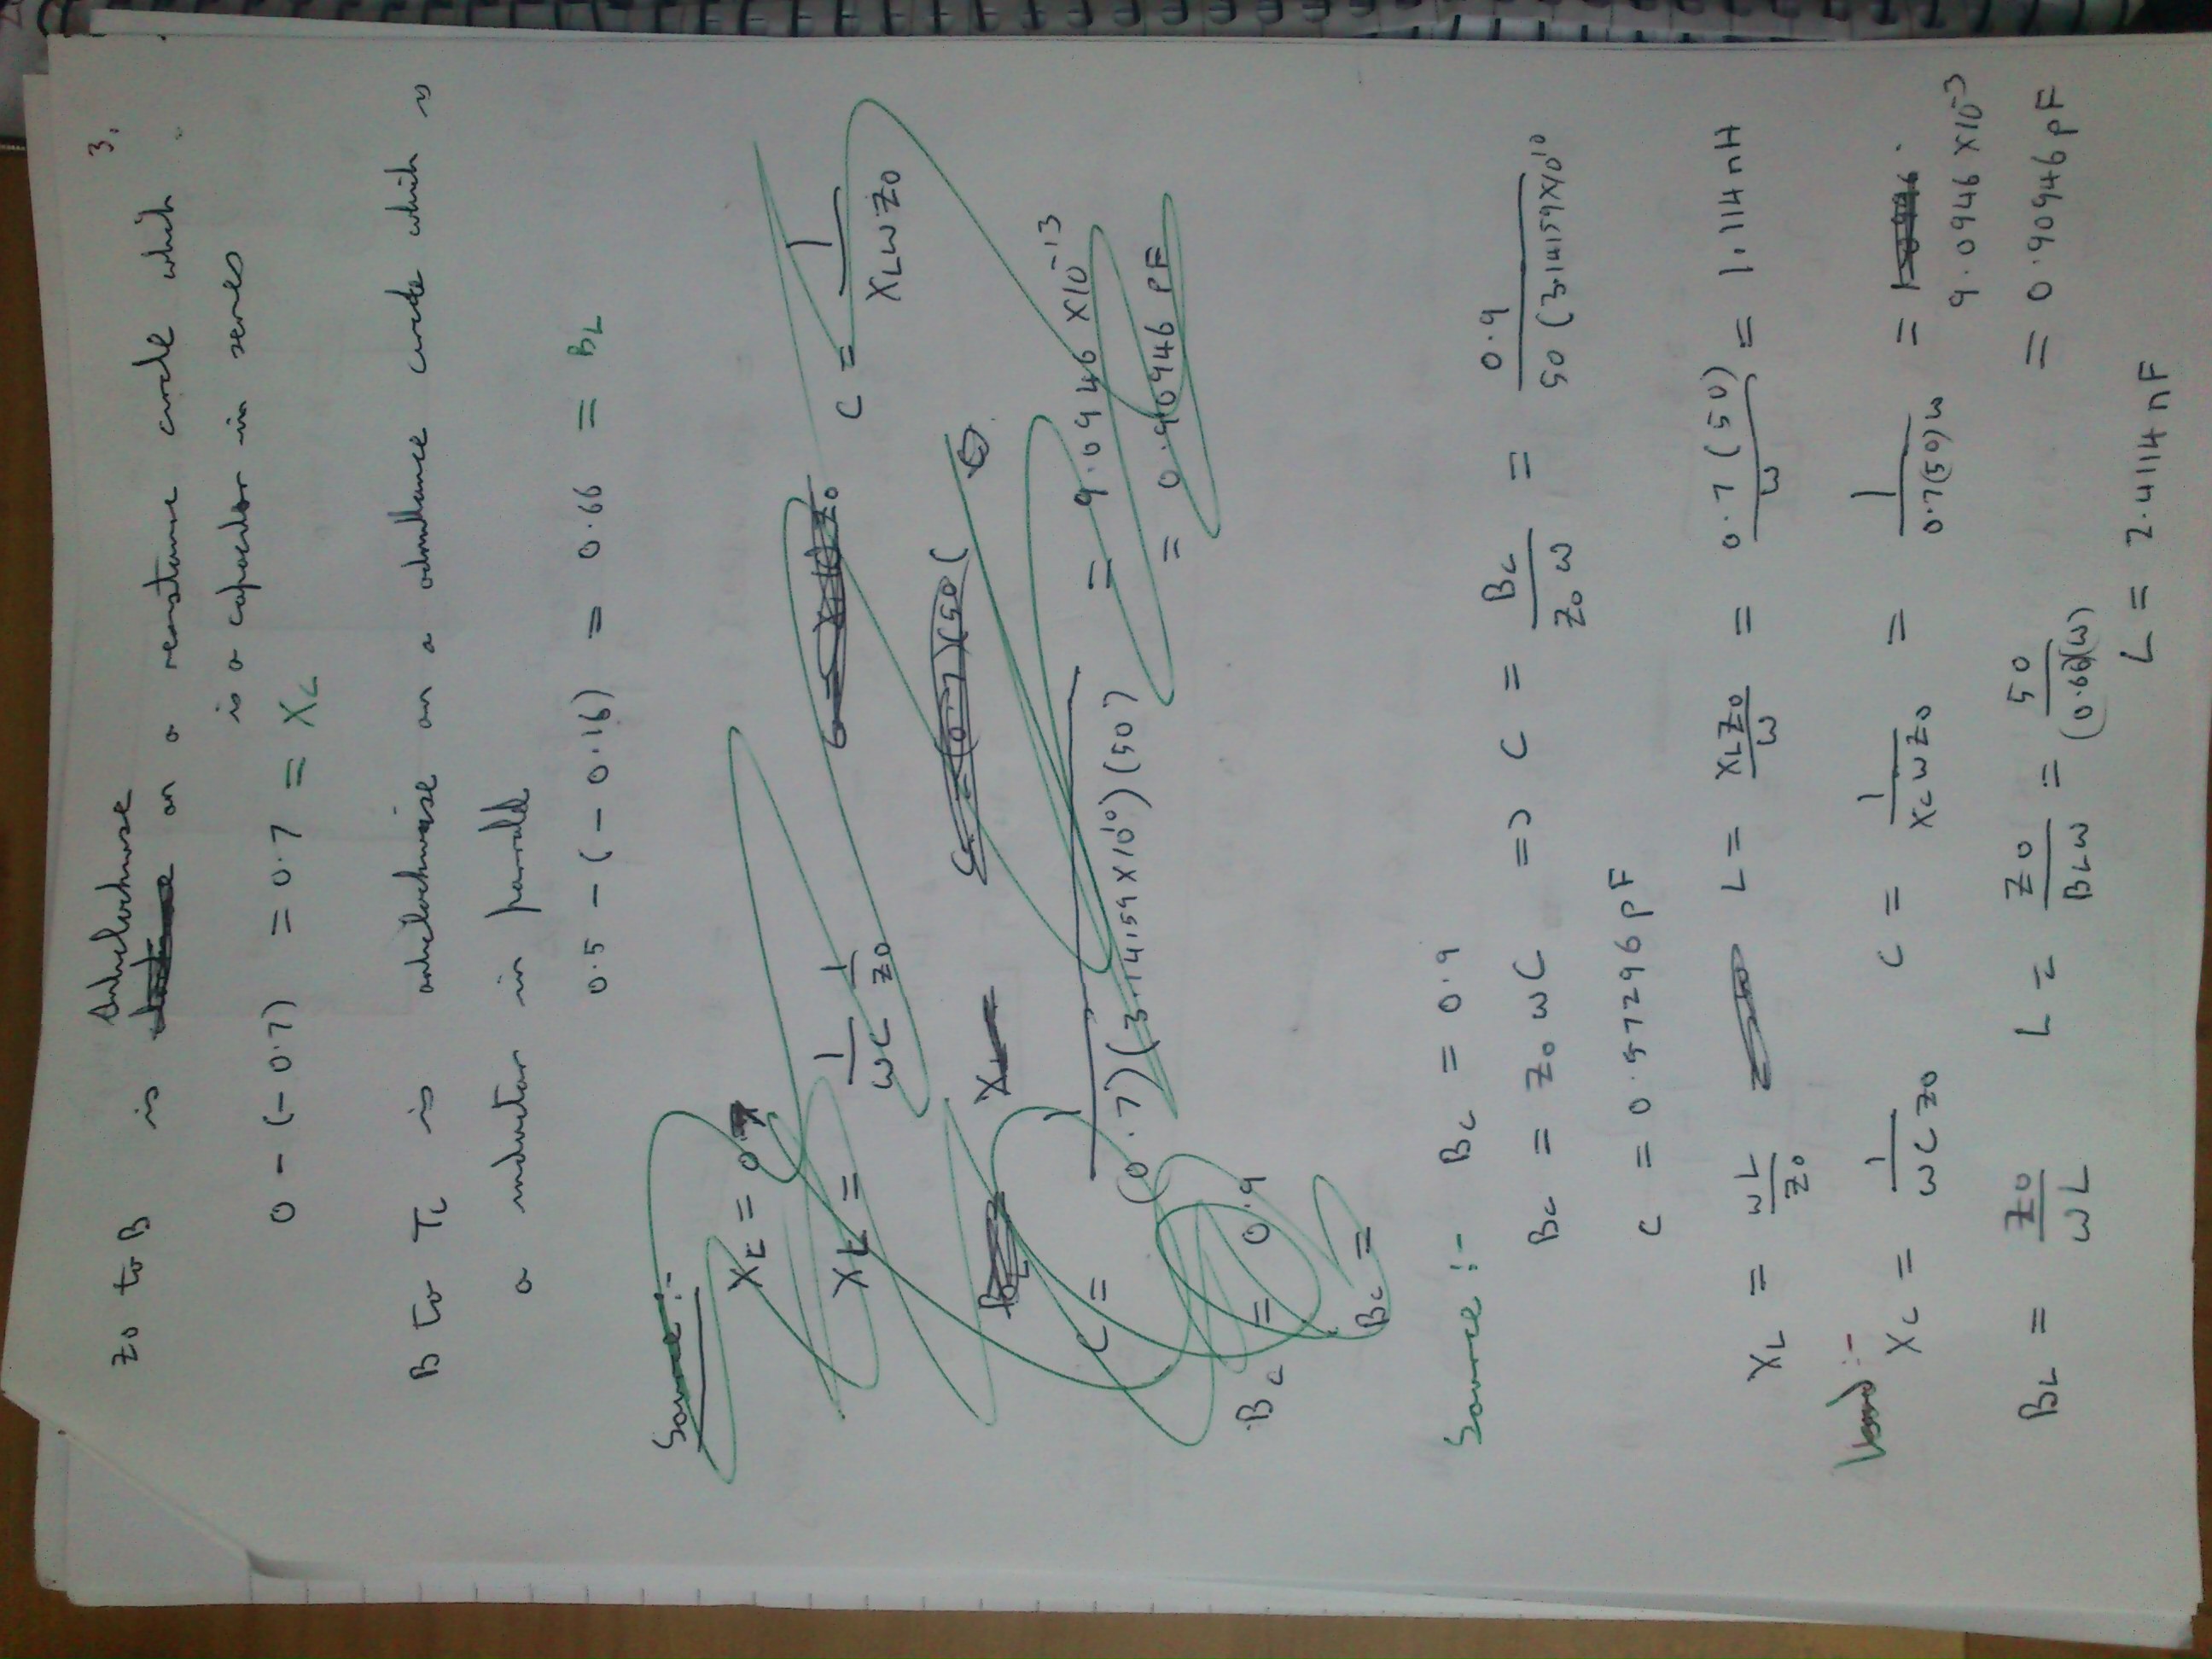 3.
Anticlockwise
Zo to B is on a resistance circle which
is a capacitor in series
0 - (-0.7) = 0.7 = XL
B to TL is anticlockwise on a admittance circle which is
a inductor in parallel
0.5 - (-0.16) = 0.66 = BL
Source :-
XL = 0.7
XL = 1/ωC 1/Z0 C = 1/XLωZ0
C = 1/(0.7)(3.14159X10^10)(50) = 9.0946 X10^-13
= 0.90946 PF
BC = 0.9
BC =
Source :- BC = 0.9
BC = Z0ωC => C = BC/Z0ω = 0.9/50(3.14159X10^10)
C = 0.57296pF
XL = ωL/Z0 L = XLZ0/ω = 0.7(50)/ω = 1.114nH
Load :-
XC = 1/ωCZ0 C = 1/XCωZ0 = 1/0.7(50)ω = 9.0946X10^-3
= 0.90946pF
BL = Z0/ωL L = Z0/BLω = 50/(0.66)(ω)
L = 2.4114nF